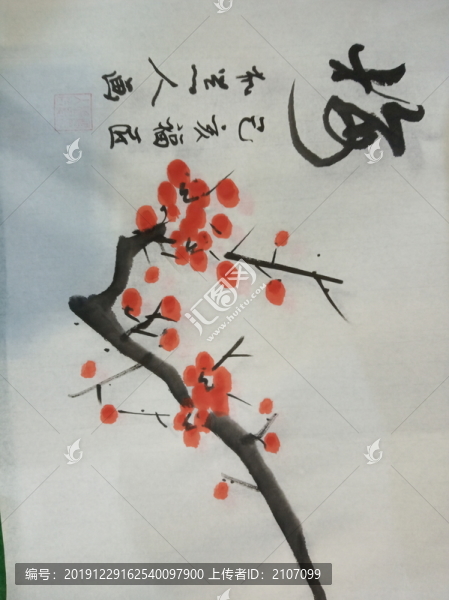 梅
己亥福
一人画
汇图网
www.huitu.com
编号：20191229162540097900 上传者ID：2107099